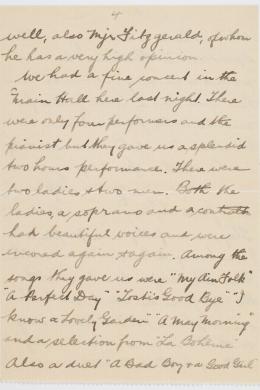 4
well, also Mjr Fitzgerald, of whom
he has a very high opinion.
We had a fine concert in the
Main Hall here last night. There
were only four performers and the
pianist but they gave us a splendid
two hours performance. There were
two ladies & two men. Both the
ladies, a soprano and a contralto
had beautiful voices and were
encored again & again. Among the
songs they gave us were "My Ain Folk"
"A Perfect Day" "Tosti's Good Bye" "I
know a Lovely Garden" "A May Morning"
and a selection from "La Boheme"
Also a duet "A Bad Boy & a Good Girl